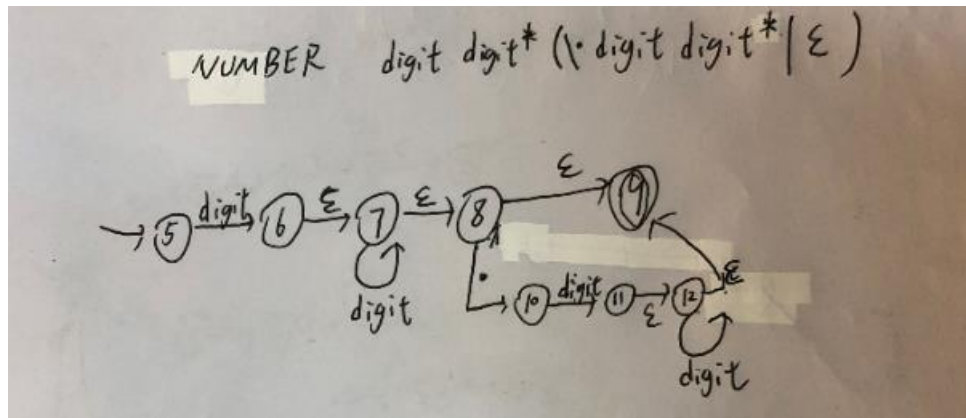 NUMBER digit digit* (\. digit digit* | ε )
ε
digit ε ε
5 6 7 8 9
digit
.
digit ε
10 11 ε 12
digit